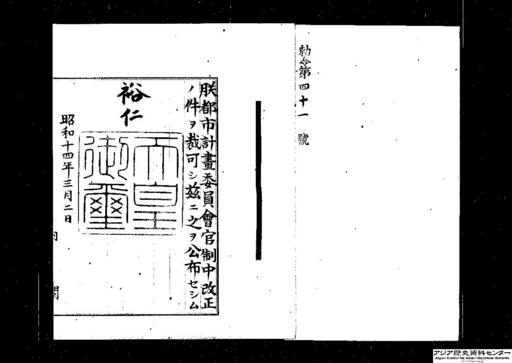 勅令第四十一號
朕都市計畫委員會官制中改正
ノ件ヲ裁可シ茲ニ之ヲ公布セシム
裕仁
天皇御璽
昭和十四年三月二日
アジア歴史資料センター
Japan Center for Asian Historical Records